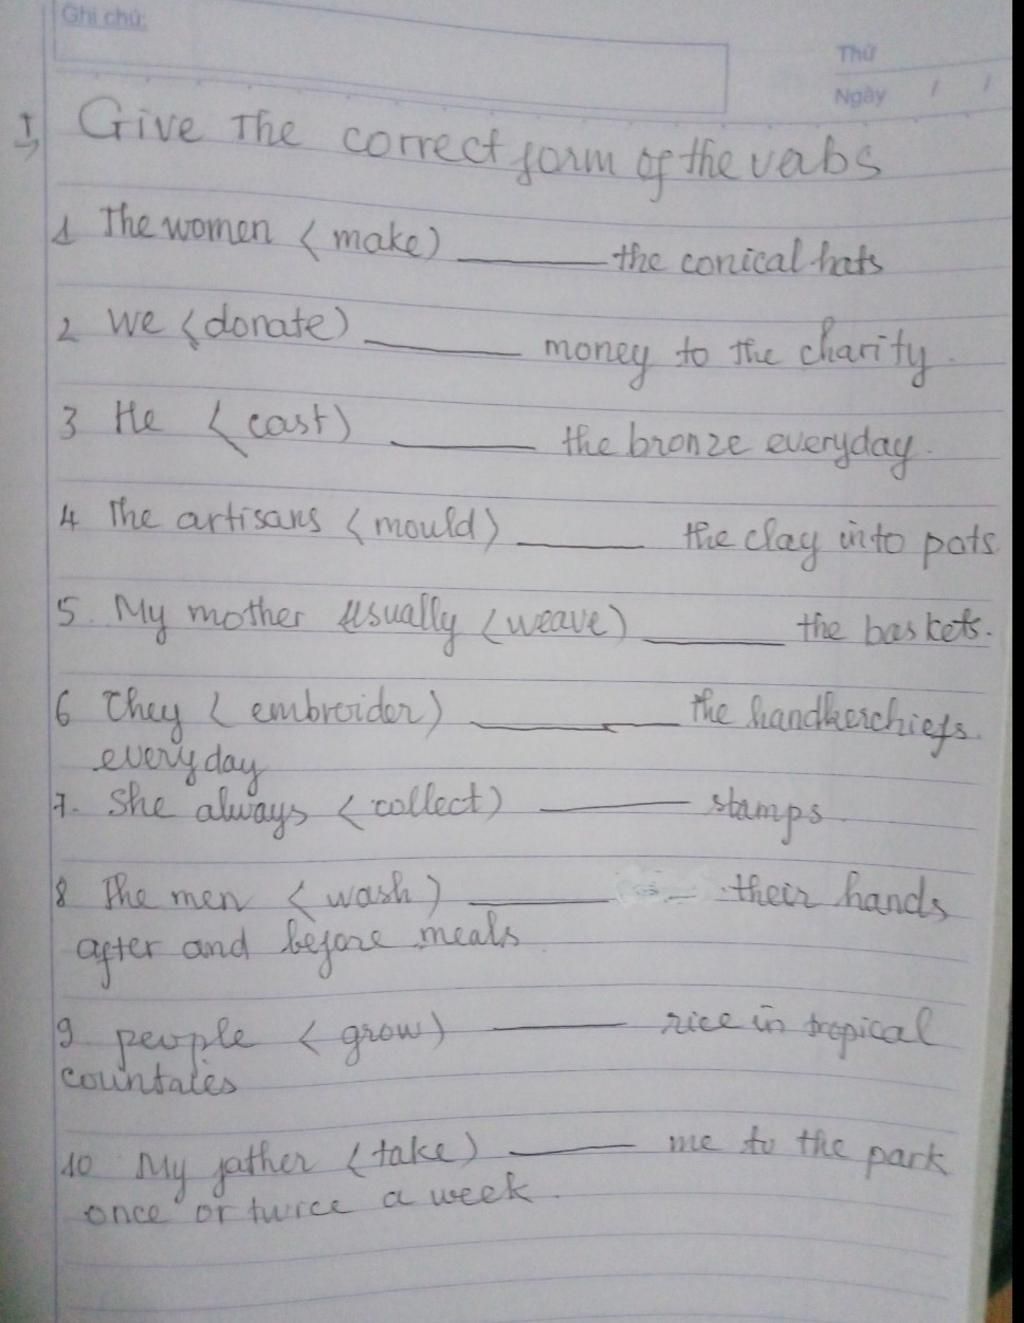 Ghi chú:
Thứ
Ngày / /
I, Give The correct form of the verbs
1 The women (make) ______ the conical hats
2 We (donate) ______ money to the charity.
3 He (cast) ______ the bronze everyday.
4 The artisans (mould) ______ the clay into pots
5. My mother usually (weave) ______ the baskets.
6 They (embroider) ______ the handkerchiefs.
everyday
7. She always (collect) ______ stamps.
8 The men (wash) ______ their hands
after and before meals
9 people (grow) ______ rice in tropical
countales
10 My father (take) ______ me to the park
once or twice a week.